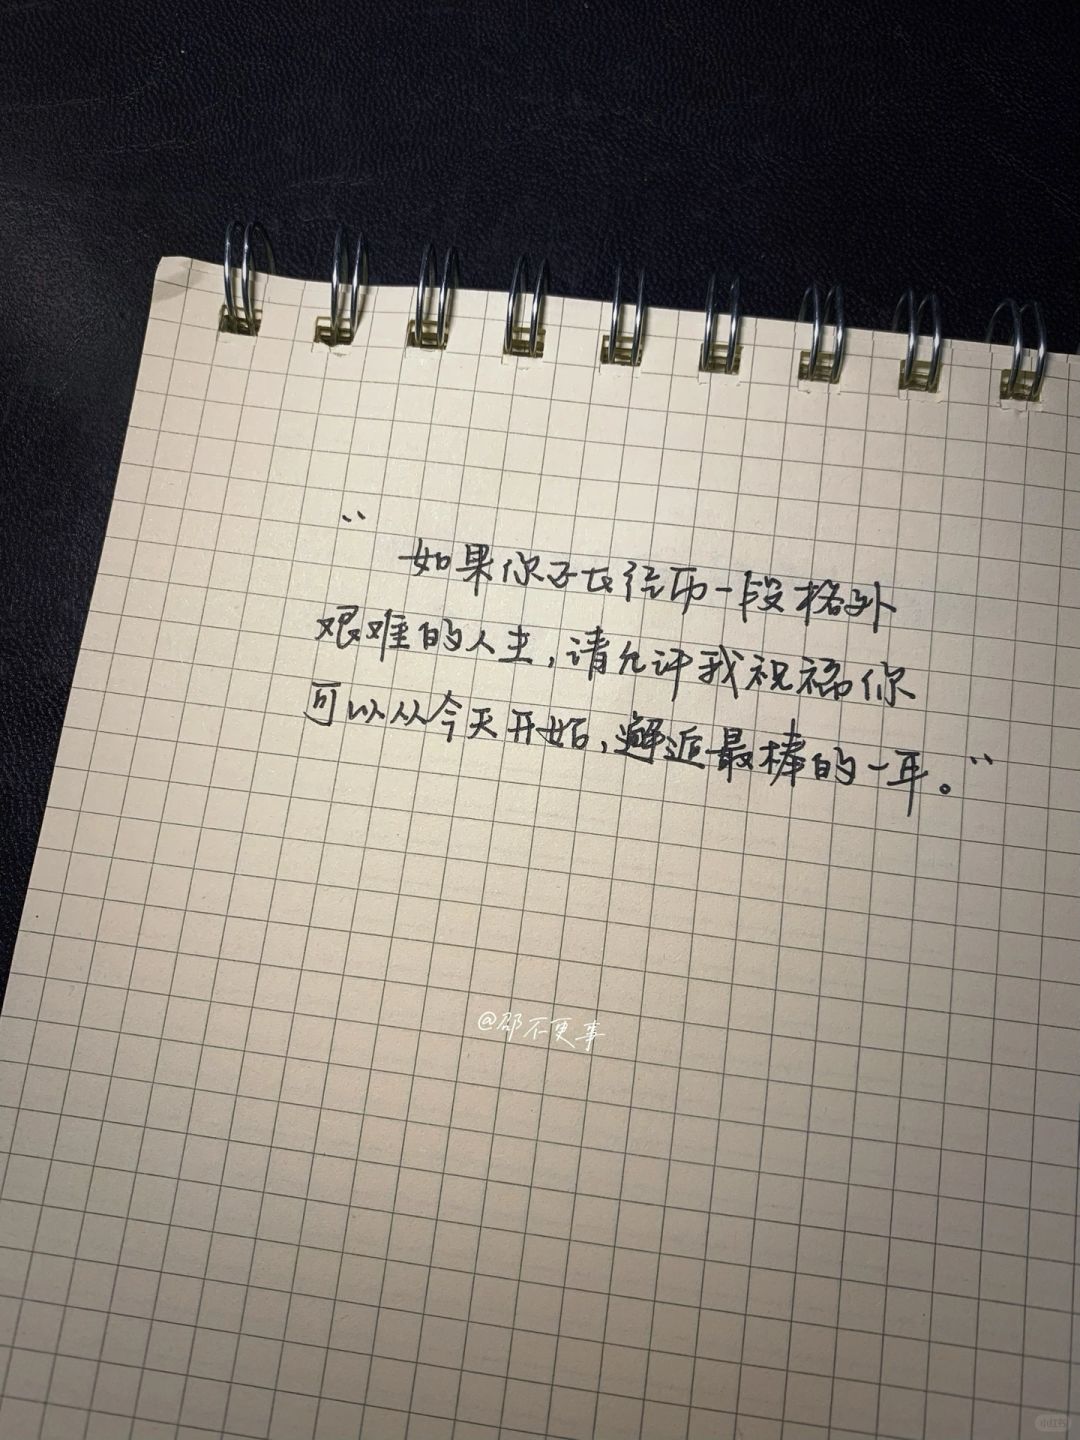 “如果你正在经历一段格外
艰难的人生，请允许我祝福你
可以从今天开始，邂逅最棒的一年。”
@邵不更事
小红书